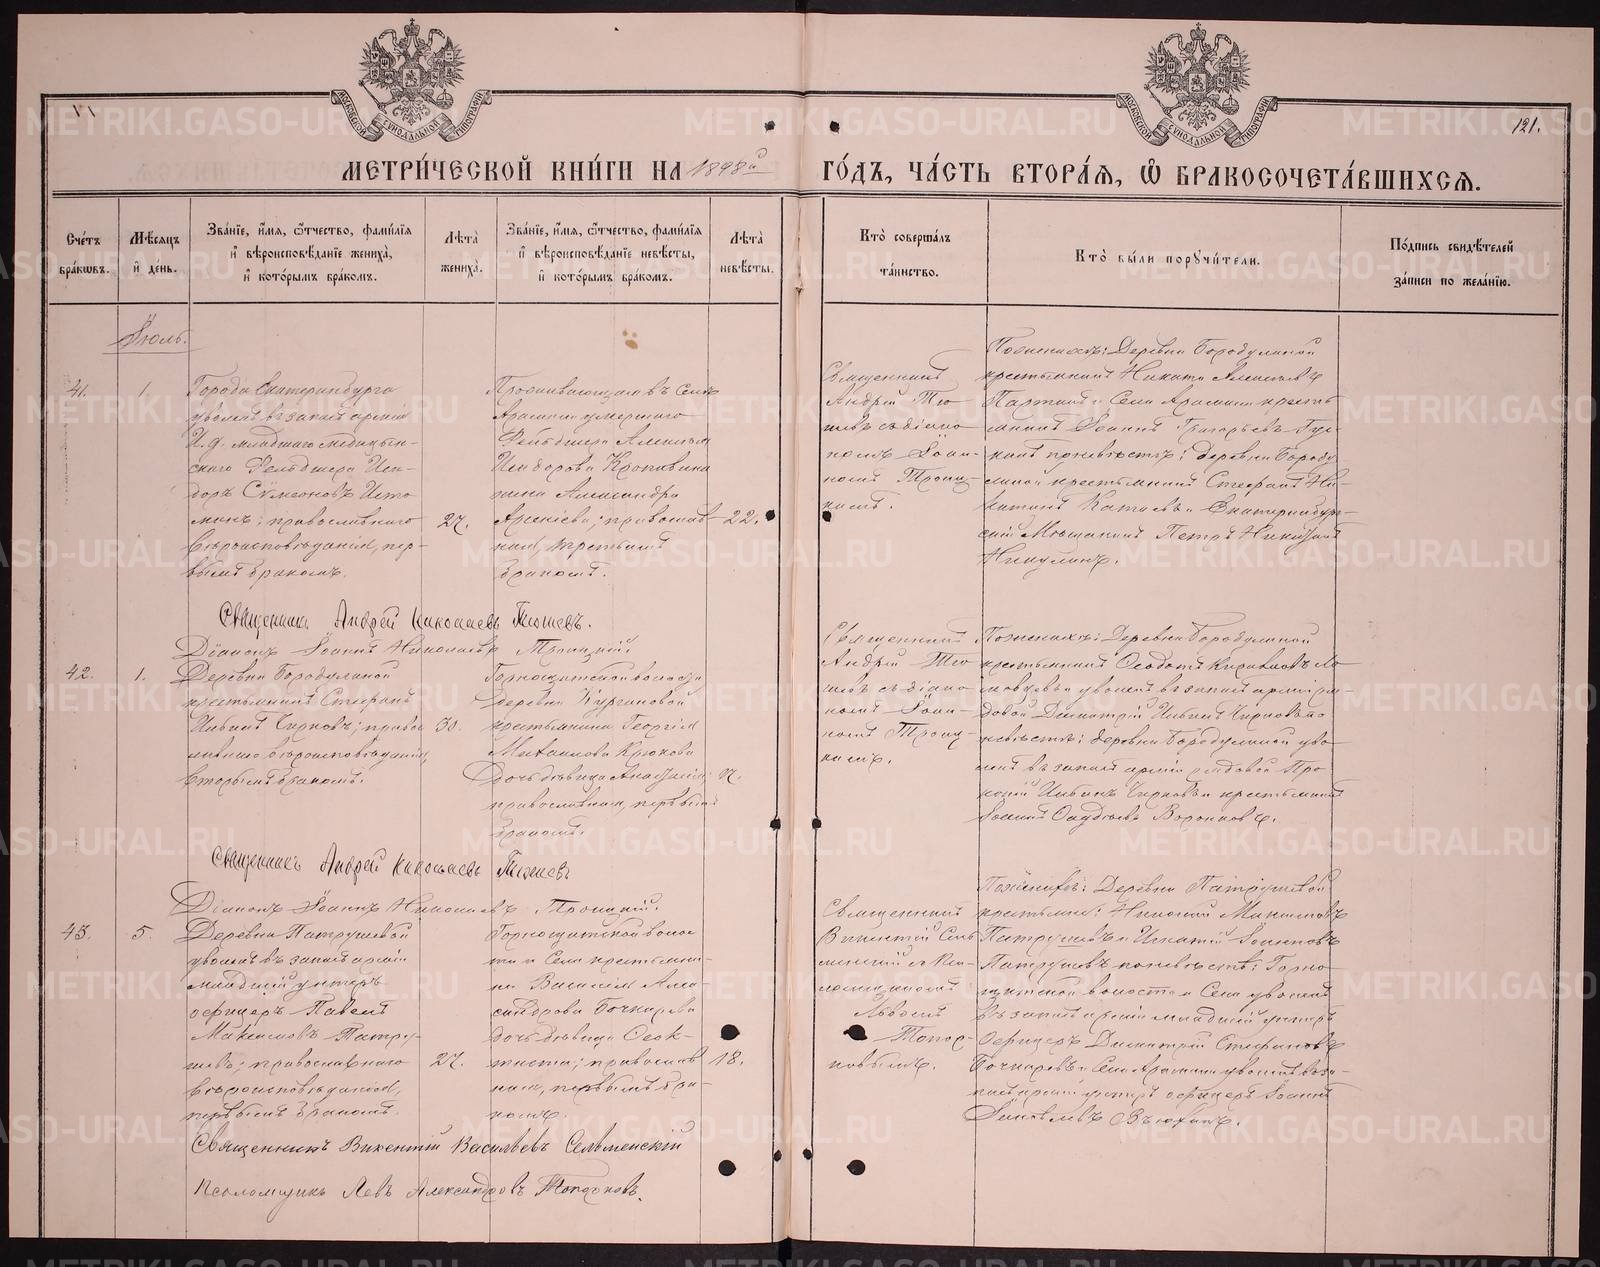 МОСКОВСКОЙ СѴНОДАЛЬНОЙ ТИПОГРАФІИ
МОСКОВСКОЙ СѴНОДАЛЬНОЙ ТИПОГРАФІИ
121.
МЕТРИ́ЧЕСКОЙ КНИ́ГИ НА 1898й ГО́ДЪ, ЧА́СТЬ ВТОРА́Я, Ѽ БРАКОСОЧЕТА́ВШИХСЯ.
Сче́тъ бра́кѡвъ.
Мѣ́сяцъ и҆ де́нь.
Зва́нїе, и҆́мя, ѻ҆́тчество, фами́лїя и҆ вѣроисповѣ́данїе жениха̀, и҆ кото́рымъ бра́комъ.
Лѣ́та жениха̀.
Зва́нїе, и҆́мя, ѻ҆́тчество, фами́лїя и҆ вѣроисповѣ́данїе невѣ́сты, и҆ кото́рымъ бра́комъ.
Лѣ́та невѣ́сты.
Кто̀ соверша́лъ та́инство.
Кто̀ бы́ли порꙋчи́тели.
По́дпись свидѣ́телей за́писи по жела́нїю.
Іюль.
41.
1.
Города Екатеринбурга
уволен. въ запасъ арміи
И. д. младшаго медицин-
скаго Фельдшера Иси-
доръ Сѵмеоновъ
православнаго
вѣроисповѣданія, пер-
вымъ бракомъ.
27.
Проживающаго въ Селѣ
Арамили умершаго
Фельдшера Алексѣя
Исидорова Кропивина
жена Александра
Арсеніева; православ-
ная, третьимъ
бракомъ.
22.
Священникъ
Андрей Тю-
шевъ съ діако-
номъ Іоан-
номъ Троиц-
кимъ.
По женихѣ: Деревни Бородулиной
крестьянинъ Никита Алексѣевъ
и Села Арамили кресть-
янинъ Іоаннъ Григорьевъ
по невѣстѣ: Деревни Бороду-
линой крестьянинъ Стефанъ Ни-
китинъ Катаевъ и Екатеринбург-
скій Мѣщанинъ Петръ
Никулинъ.
Священникъ Андрей Николаевъ Тюшевъ.
Діаконъ Іоаннъ Николаевъ Троицкій.
42.
1.
Деревни Бородулиной
крестьянинъ Стефанъ
Ивановъ Чирковъ; право-
славнаго вѣроисповѣданія,
вторымъ бракомъ.
30.
Горнощитской волости
деревни Кургановой
крестьянина Георгія
Михаилова Крюкова
Дочь дѣвица Анастасія
православная, первымъ
бракомъ.
Священникъ
Андрей Тю-
шевъ съ діако-
номъ Іоан-
номъ Троиц-
кимъ.
По женихѣ: Деревни Бородулиной
крестьянинъ Ѳеодотъ
уволен. въ запасъ арміи ря-
довой Димитрій Ивановъ Чирковъ по
невѣстѣ: деревни Бородулиной уво-
лен. въ запасъ арміи рядовой Про-
копій Ивановъ Чирковъ и крестьянинъ
Іоаннъ Воронковъ.
Священникъ Андрей Николаевъ Тюшевъ
Діаконъ Іоаннъ Николаевъ Троицкій.
43.
5.
Деревни Патрушевой
уволен. въ запасъ арміи
младшій унтеръ
офицеръ Павелъ
Максимовъ Патру-
шевъ; православнаго
вѣроисповѣданія,
первымъ бракомъ.
27.
Горнощитской волос-
ти и Села крестьяни-
на Василія Алек-
сандрова Бочкарева
дочь дѣвица Ѳеок-
тиста; православ-
ная, первымъ бра-
комъ.
18.
Священникъ
Викентій Сель-
менскій съ Пса-
ломщикомъ
Львомъ
Топор-
ковымъ.
По женихѣ: Деревни Патрушевой
крестьяне: Николай Максимовъ
Патрушевъ и Игнатій Іоанновъ
Патрушевъ по невѣстѣ: Горно-
щитской волости и Села уволен.
въ запасъ арміи младшій унтеръ
Офицеръ Димитрій Стефановъ
Бочкаревъ и Села Арамили уволен. въ за-
пасъ арміи унтеръ офицеръ Іоаннъ
Яковлевъ Вьюхинъ.
Священникъ Викентій Васильевъ Сельменскій
Псаломщикъ Левъ Александровъ Топорковъ.
METRIKI.GASO-URAL.RU